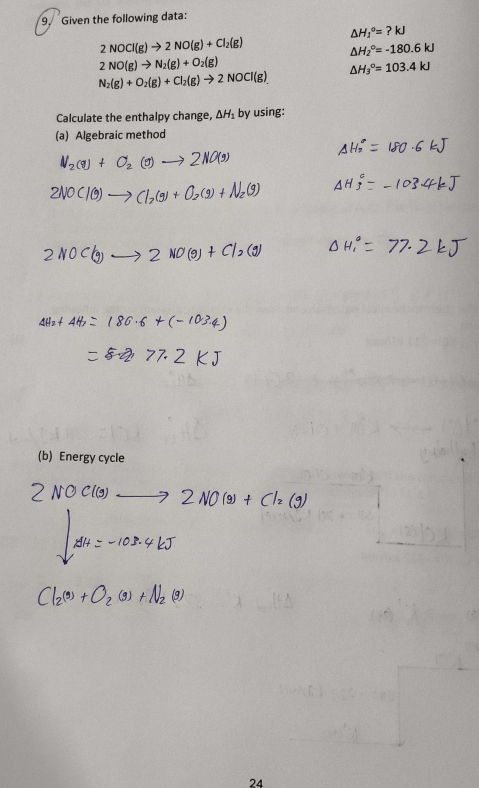 9. Given the following data:
2 NOCl(g) → 2 NO(g) + Cl₂(g) ΔH₁°= ? kJ
2 NO(g) → N₂(g) + O₂(g) ΔH₂°= -180.6 kJ
N₂(g) + O₂(g) + Cl₂(g) → 2 NOCl(g) ΔH₃°= 103.4 kJ
Calculate the enthalpy change, ΔH₁ by using:
(a) Algebraic method
N₂(g) + O₂ (g) → 2NO(g) ΔH₂° = 180.6 kJ
2NOCl(g) → Cl₂(g) + O₂(g) + N₂(g) ΔH₃° = -103.4kJ
2NOCl(g) → 2 NO(g) + Cl₂(g) ΔH₁° = 77.2 kJ
ΔH₂ + ΔH₃ = 180.6 + (-103.4)
= 77.2 KJ
(b) Energy cycle
2 NOCl(g) → 2 NO(g) + Cl₂ (g)
ΔH = -103.4 kJ
Cl₂(g) + O₂ (g) + N₂ (g)
24